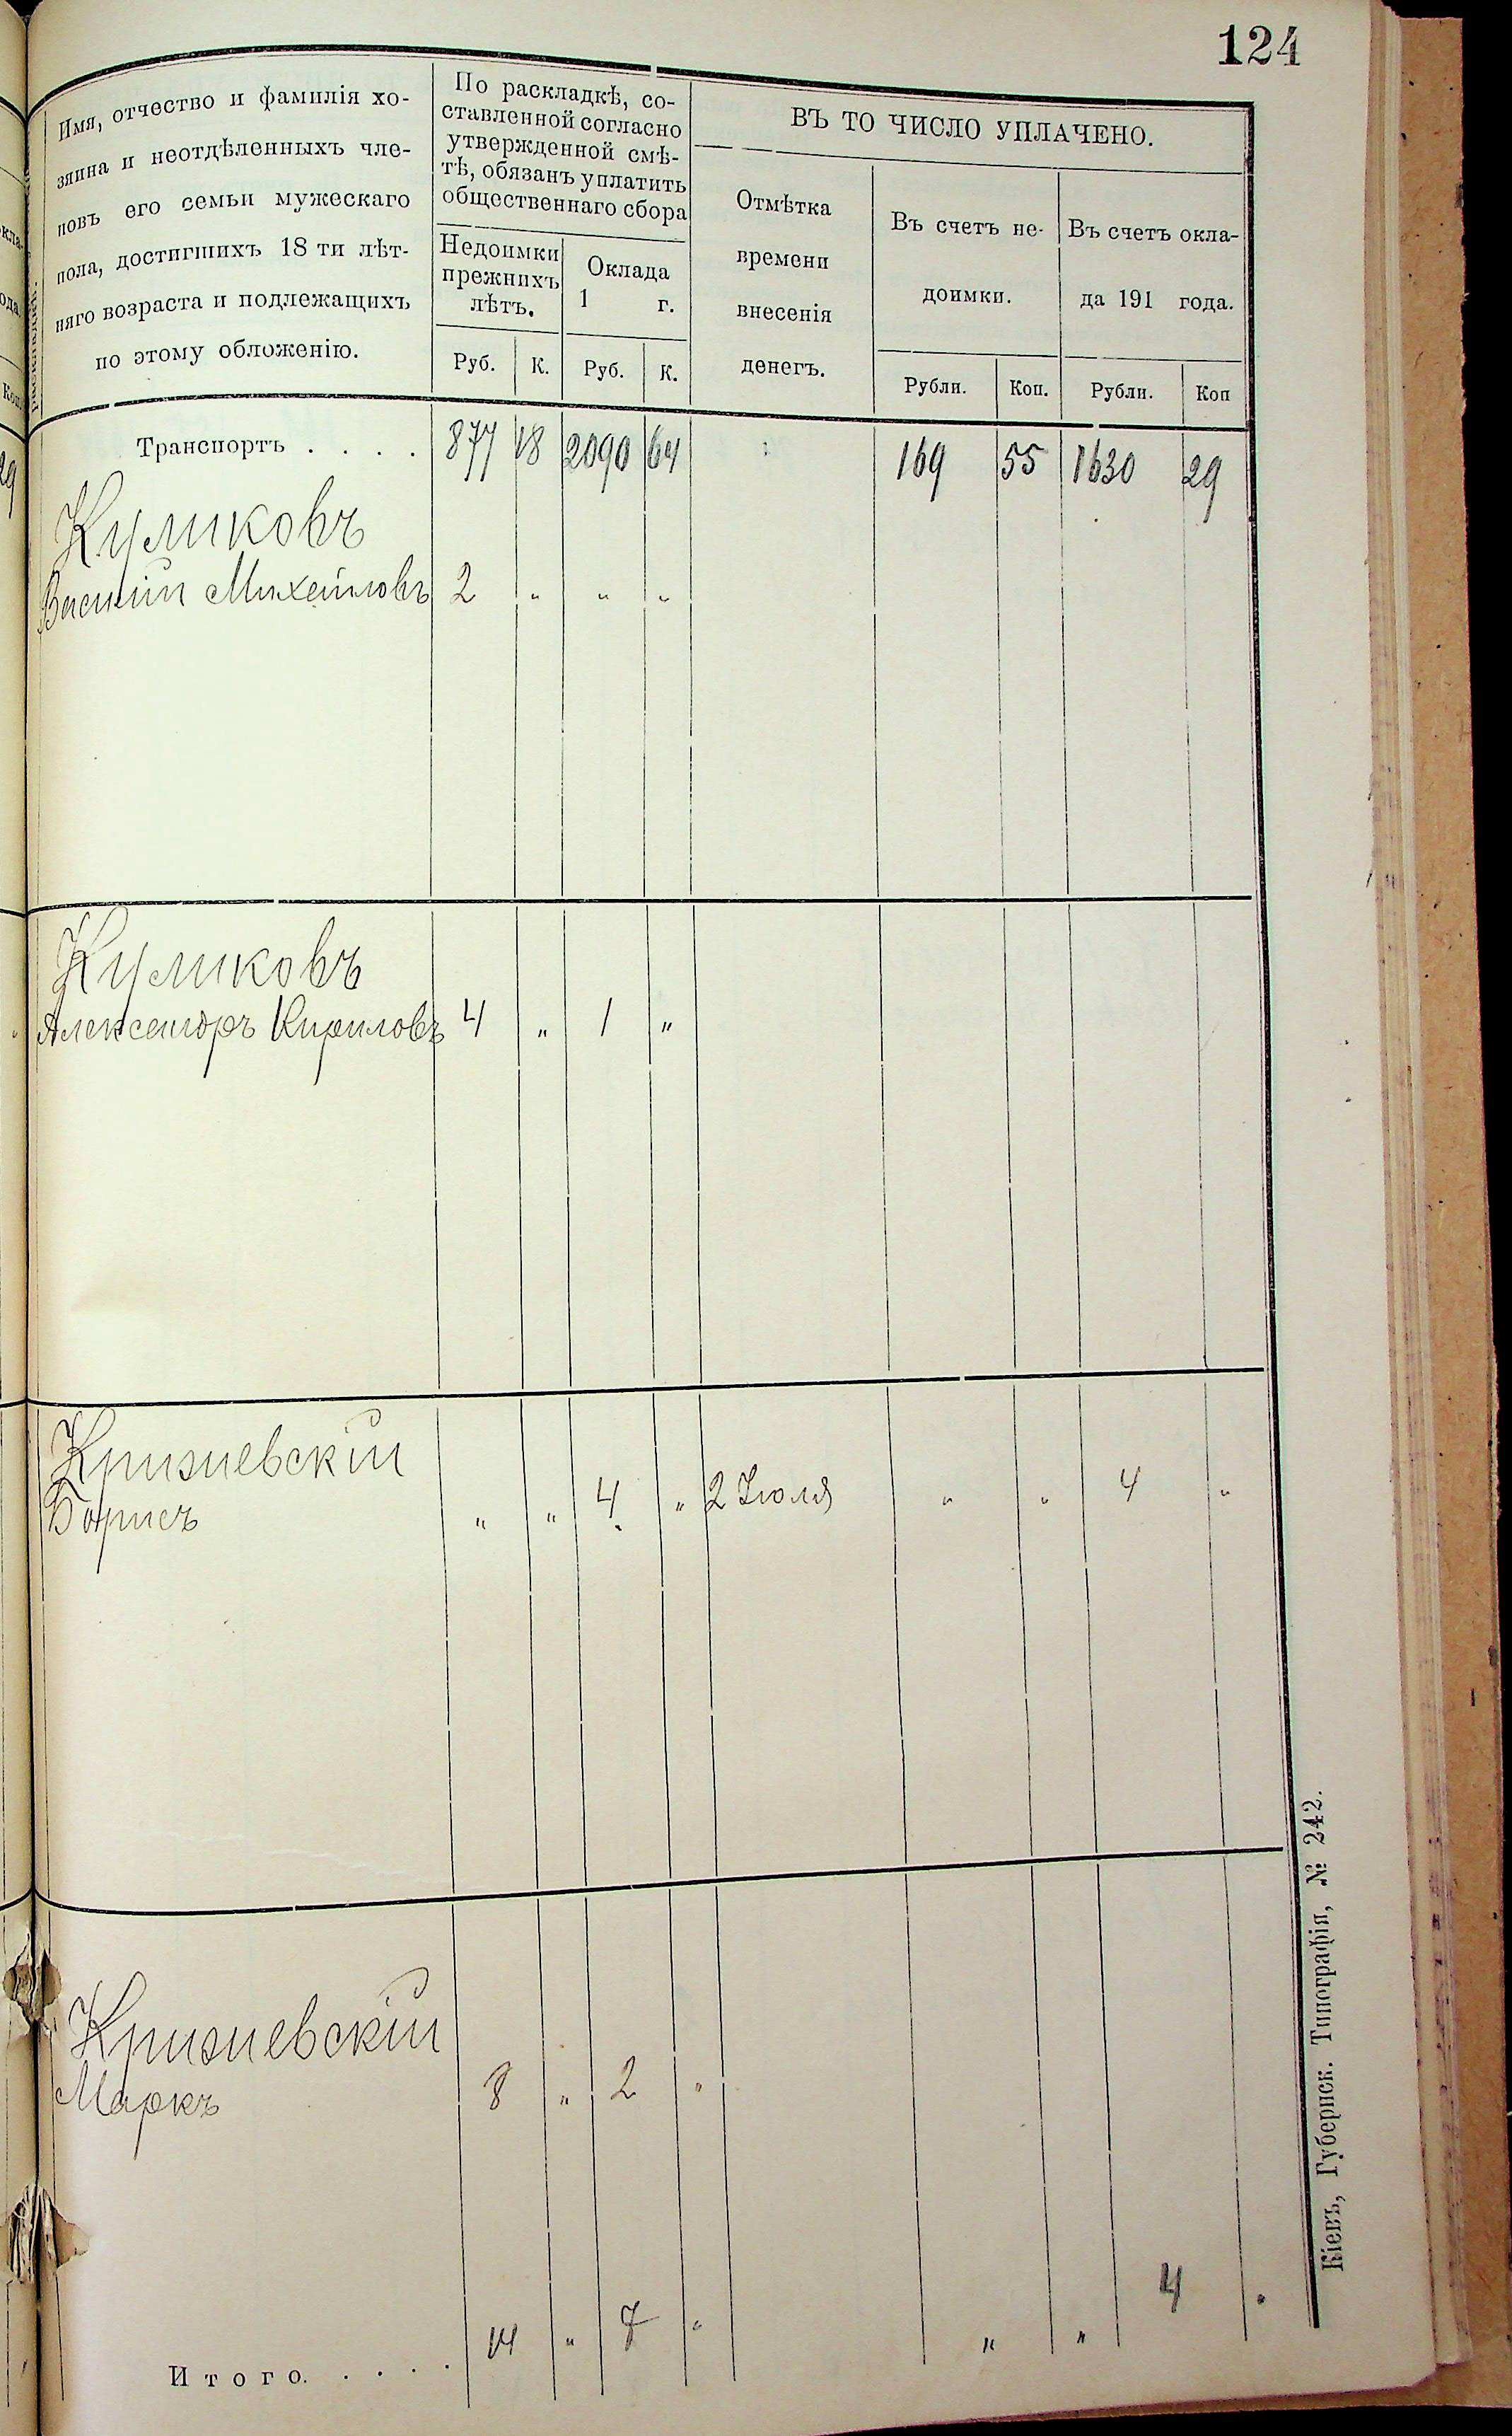 124
Имя, отчество и фамилія хо-
зяина и неотдѣленныхъ чле-
новъ его семьи мужескаго
пола, достигшихъ 18 ти лѣт-
няго возраста и подлежащихъ
по этому обложенію.
По раскладкѣ, со-
ставленной согласно
утвержденной смѣ-
тѣ, обязанъ уплатить
общественнаго сбора
Недоимки
прежнихъ
лѣтъ.
Оклада
1 г.
Руб. К. Руб. К.
ВЪ ТО ЧИСЛО УПЛАЧЕНО.
Отмѣтка
времени
внесенія
денегъ.
Въ счетъ не-
доимки.
Въ счетъ окла-
да 191 года.
Рубли. Коп. Рубли. Коп
Транспортъ . . . . 877 18 2090 64 169 55 1630 29
Куликовъ
Василій Михайловъ 2 " " "
Куликовъ
Александръ Кириловъ 4 " 1 "
Кризиевскій
Борисъ " " 4 " 2 Іюля " " 4 "
Кризиевскій
Маркъ 8 " 2 "
Итого. . . . . 14 " 7 " " " 4 "
Кіевъ, Губернск. Типографія, № 242.